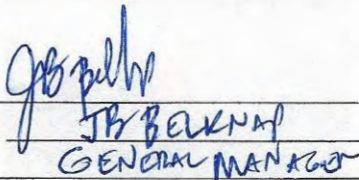 JB Belknap
JB BELKNAP
GENERAL MANAGER